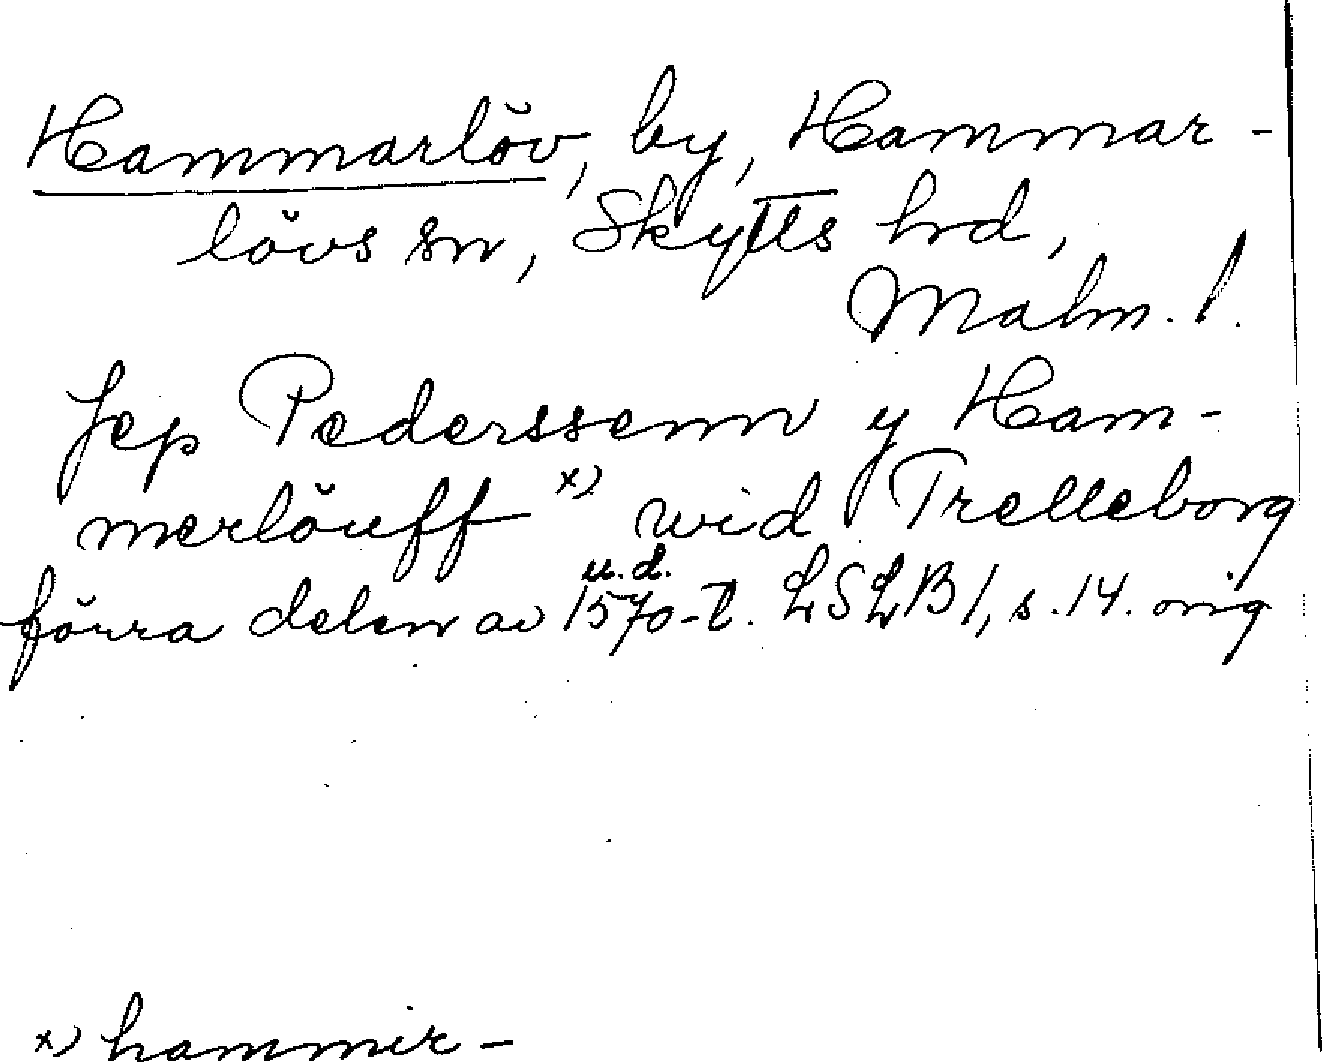 Hammarlöv, by, Hammar-
lövs sn, Skytts hd,
Malm. l.
Jep Pederssenn y Ham-
merlöuff x) wid Trelleborg
u.d.
förra delen av 1570-t. LSLB 1, s. 14. orig
x) hammer-